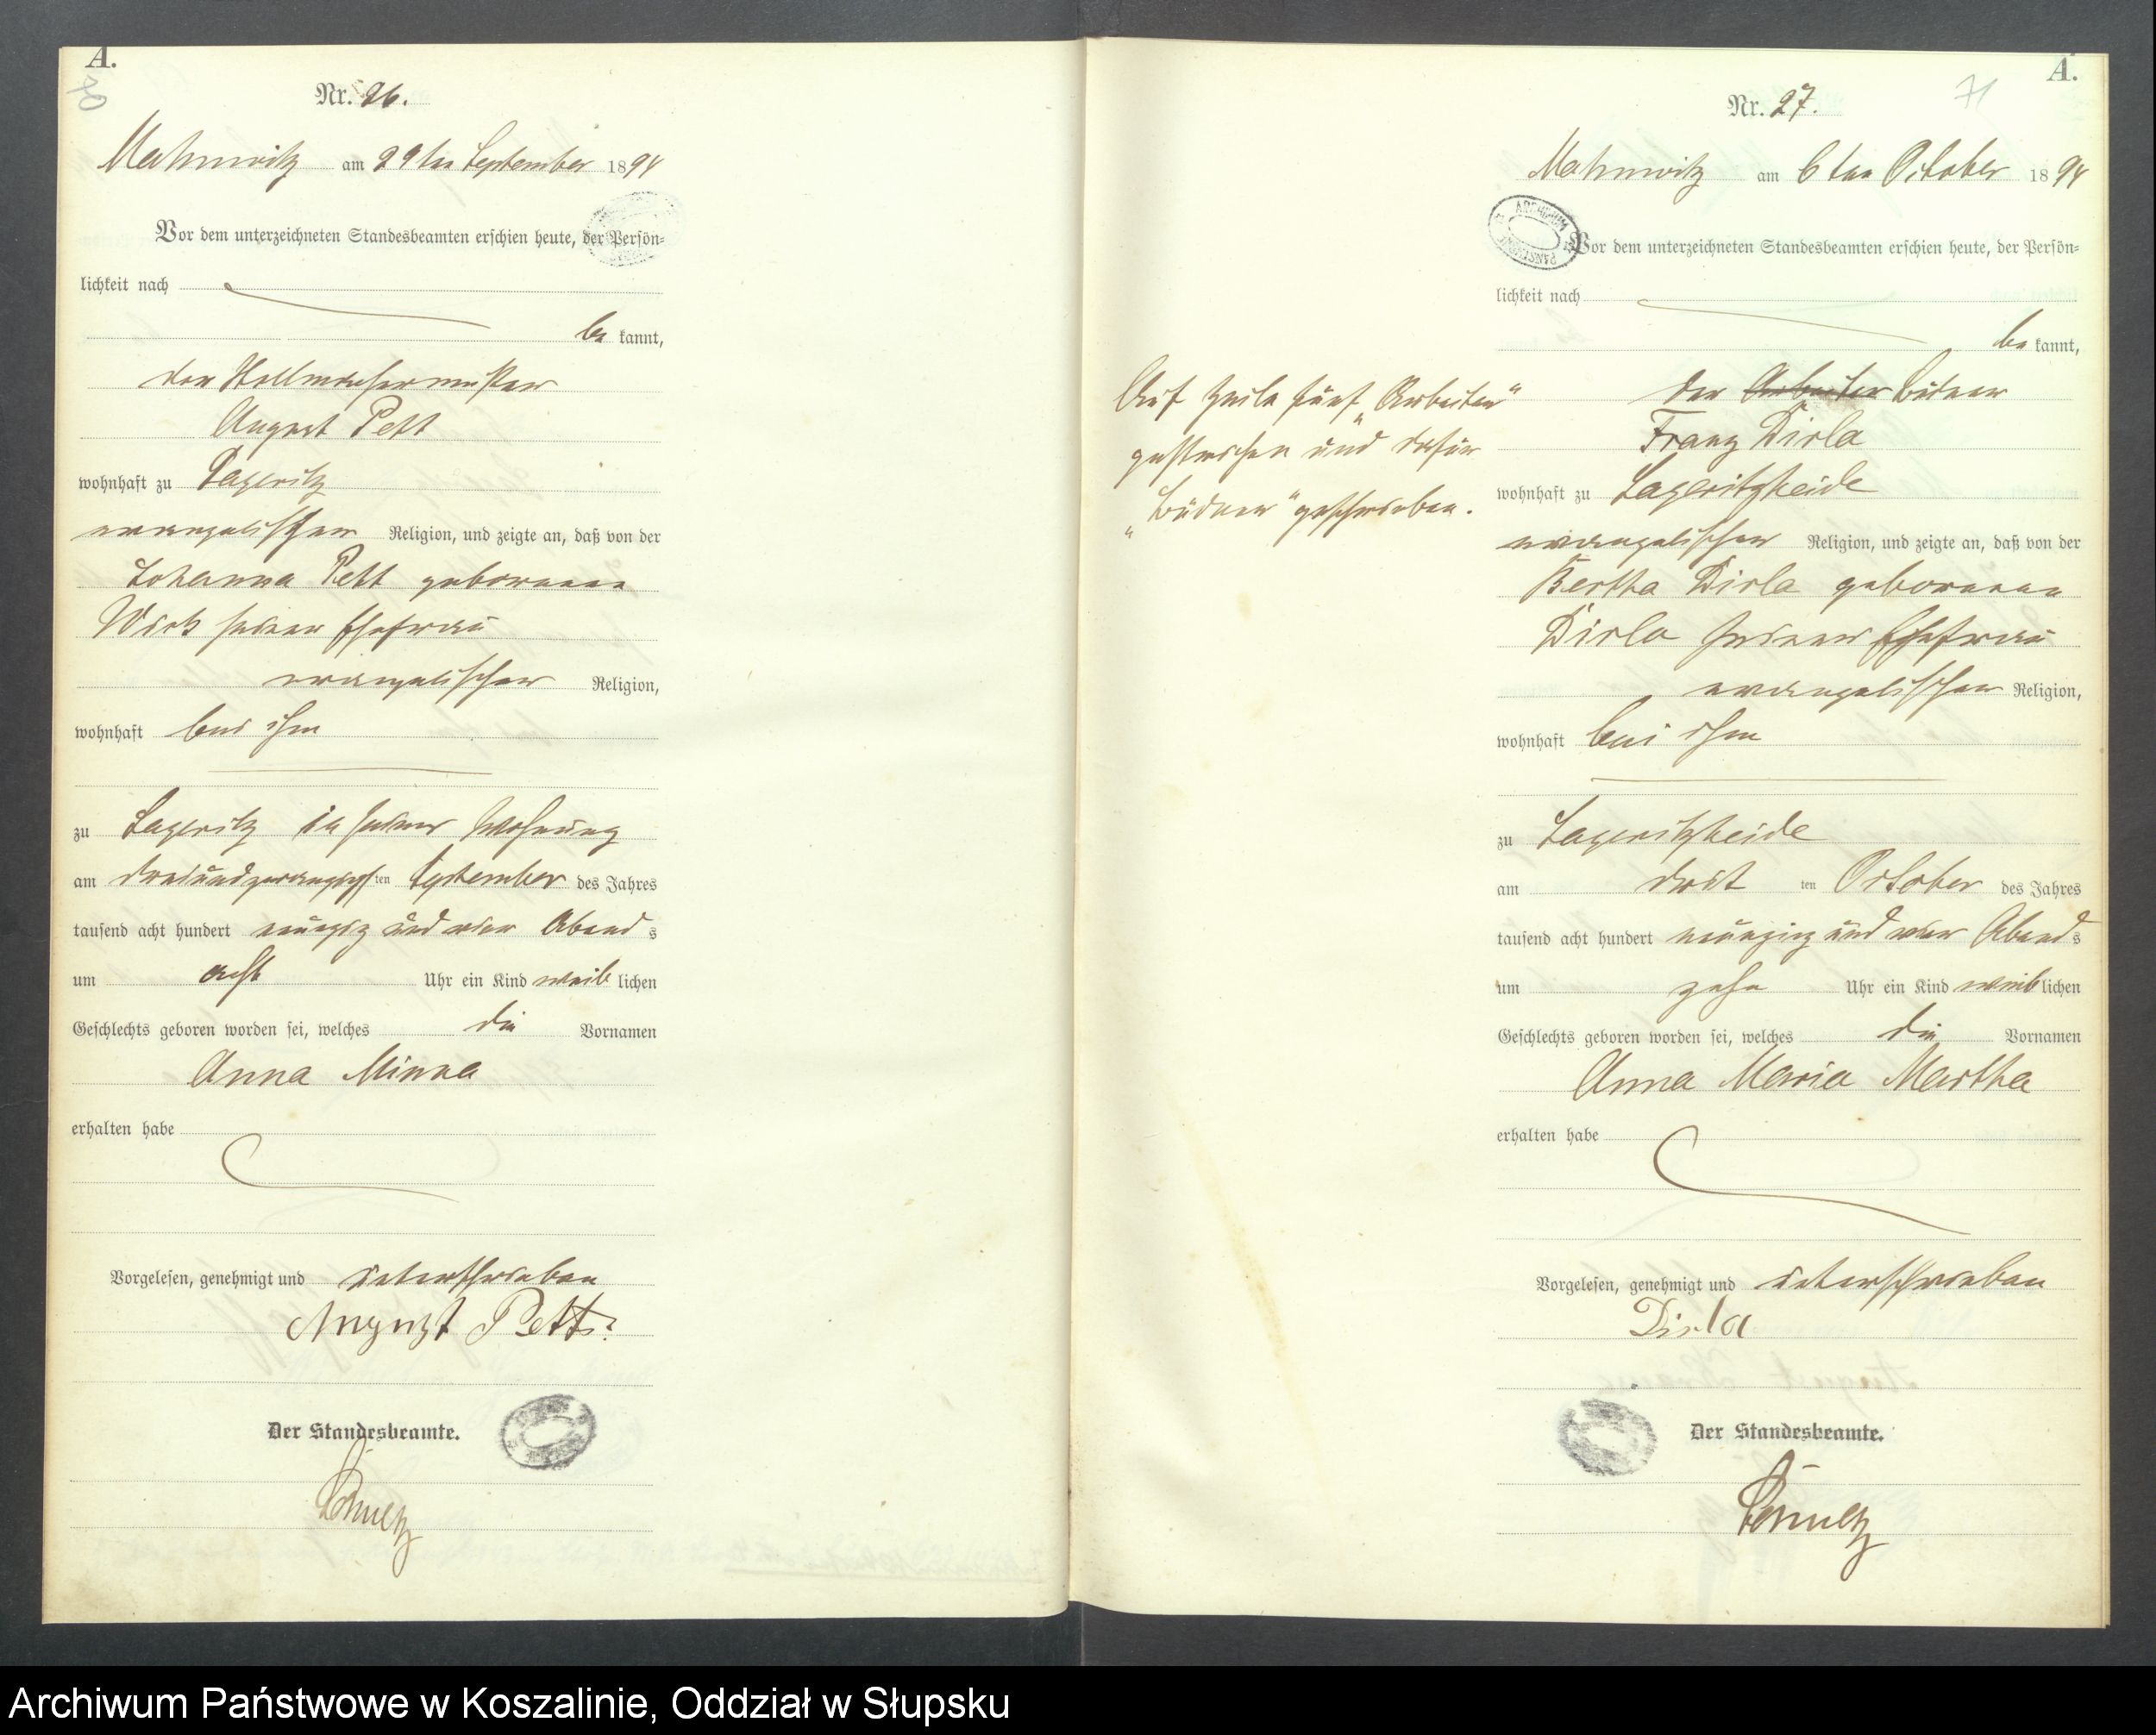 A.
70
Nr. 26.
Mahnwitz am 29ten September 1894
Vor dem unterzeichneten Standesbeamten erschien heute, der Persön=
lichkeit nach
be kannt,
der Stellmachermeister
August Pett
wohnhaft zu Zageritz
evangelischer Religion, und zeigte an, daß von der
Johanna Pett geborenen
seiner Ehefrau
evangelischer Religion,
wohnhaft bei ihm
zu Zageritz in seiner Wohnung
am dreiundzwanzigsten September des Jahres
tausend acht hundert neunzig und vier Abend s
um acht Uhr ein Kind weib lichen
Geschlechts geboren worden sei, welches die Vornamen
Anna Minna
erhalten habe
Vorgelesen, genehmigt und unterschrieben
August Pett
Der Standesbeamte.
A.
71
Nr. 27.
Mahnwitz am 6ten October 1894
Vor dem unterzeichneten Standesbeamten erschien heute, der Persön=
lichkeit nach
be kannt,
Auf Zeile fünf „Arbeiter"
gestrichen und dafür
„Büdner" geschrieben.
der Arbeiter Büdner
Franz Dirla
wohnhaft zu Zageritzheide
evangelischer Religion, und zeigte an, daß von der
Bertha Dirla geborenen
Dirla seiner Ehefrau
evangelischer Religion,
wohnhaft bei ihm
zu Zageritzheide
am dritten October des Jahres
tausend acht hundert neunzig und vier Abend s
um zehn Uhr ein Kind weib lichen
Geschlechts geboren worden sei, welches die Vornamen
Anna Maria Martha
erhalten habe
Vorgelesen, genehmigt und unterschrieben
Dirla
Der Standesbeamte.
Archiwum Państwowe w Koszalinie, Oddział w Słupsku